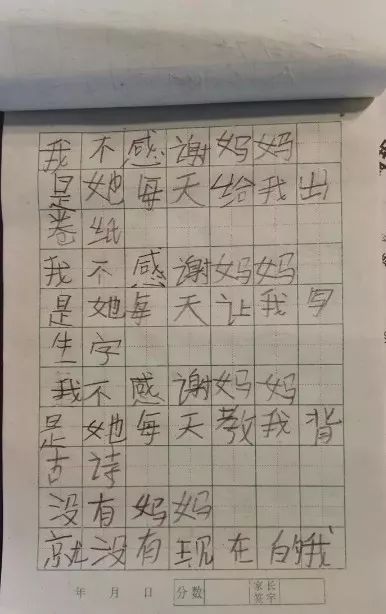 我不感谢妈妈
是她每天给我出
卷纸
我不感谢妈妈
是她每天让我写
生字
我不感谢妈妈
是她每天教我背
古诗
没有妈妈
就没有现在的我
年 月 日 分数 家长签字